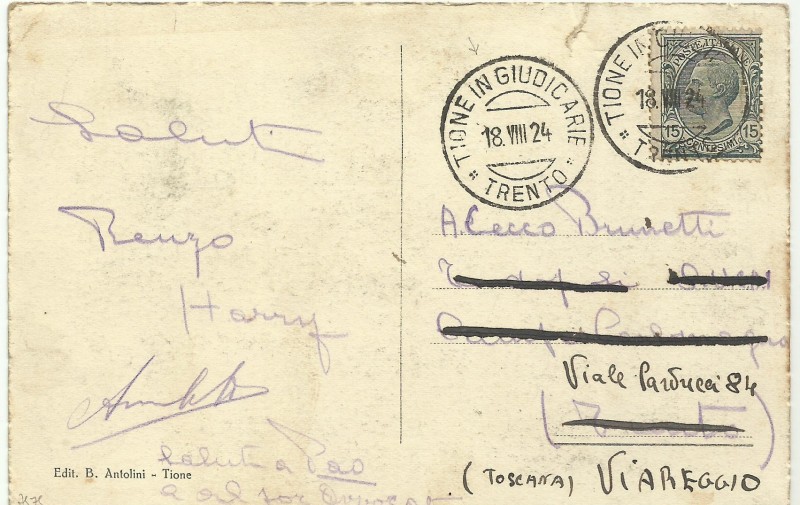 Saluti
Renzo
Harry
Saluti a Pao
Edit. B. Antolini - Tione
TIONE IN GIUDICARIE
18. VIII 24
* TRENTO *
TIONE IN
18. VIII 24
POSTE ITALIANE
15 15
CENTESIMI
A Cecco Brunetti
Viale Carducci 84
(Trento)
(TOSCANA) VIAREGGIO